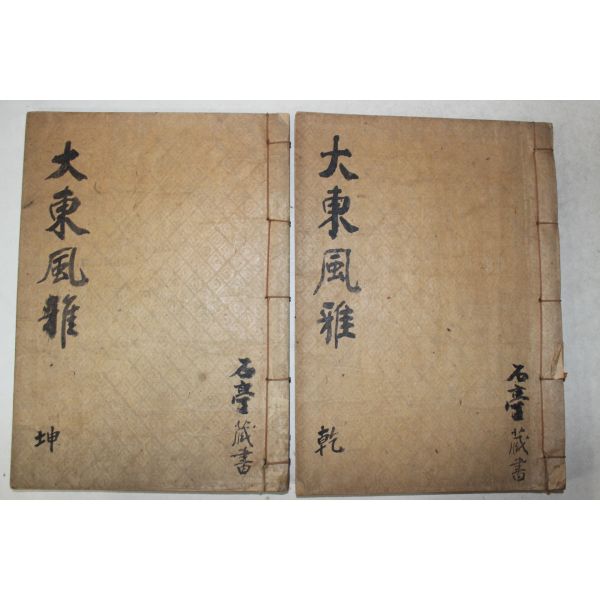 大東風雅
乾
石臺藏書
大東風雅
坤
石臺藏書